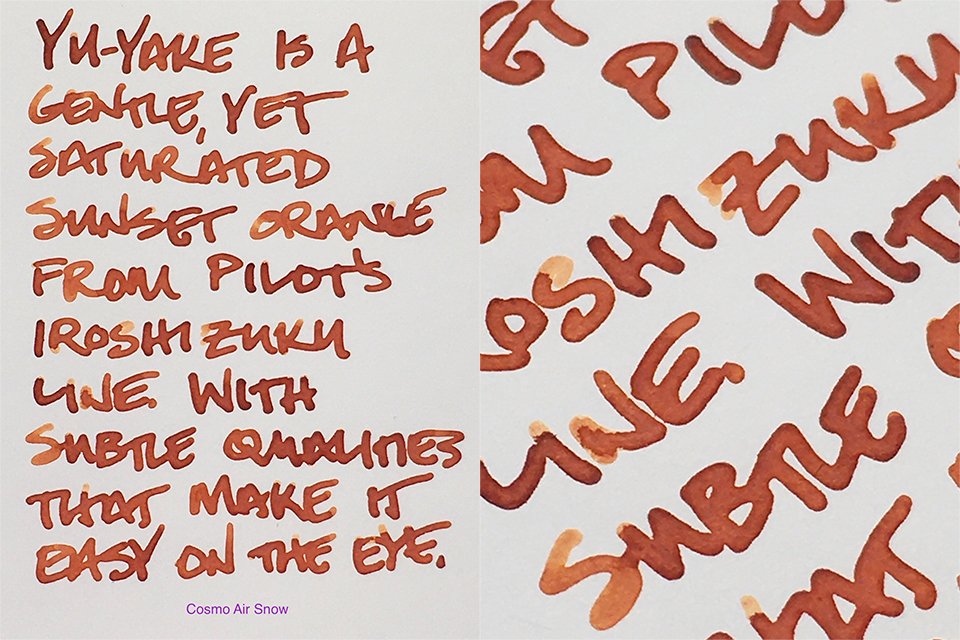 YU-YAKE IS A
GENTLE, YET
SATURATED
SUNSET ORANGE
FROM PILOT'S
IROSHIZUKU
LINE. WITH
SUBTLE QUALITIES
THAT MAKE IT
EASY ON THE EYE.
Cosmo Air Snow
PILO
OSHIZUKU
LINE. WIT
SUBTLE
HAT